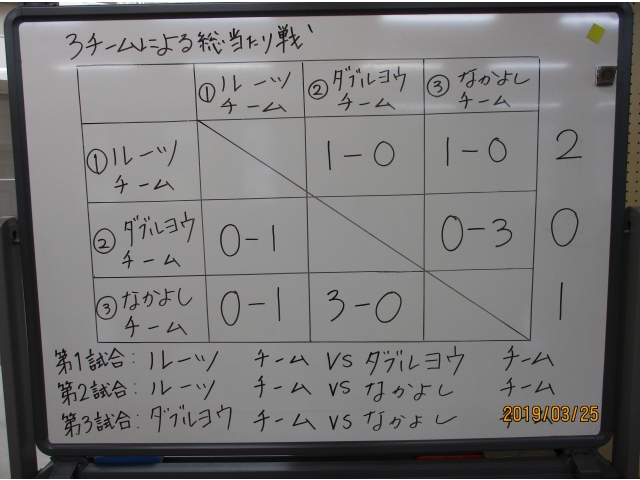 3チームによる総当たり戦
①ルーツ ②ダブルヨウ ③なかよし
チーム チーム チーム
①ルーツ チーム 1-0 1-0 2
②ダブルヨウ チーム 0-1 0-3 0
③なかよし チーム 0-1 3-0 1
第1試合:ルーツ チーム VS ダブルヨウ チーム
第2試合:ルーツ チーム VS なかよし チーム
第3試合:ダブルヨウ チーム VS なかよし チーム
2019/03/25